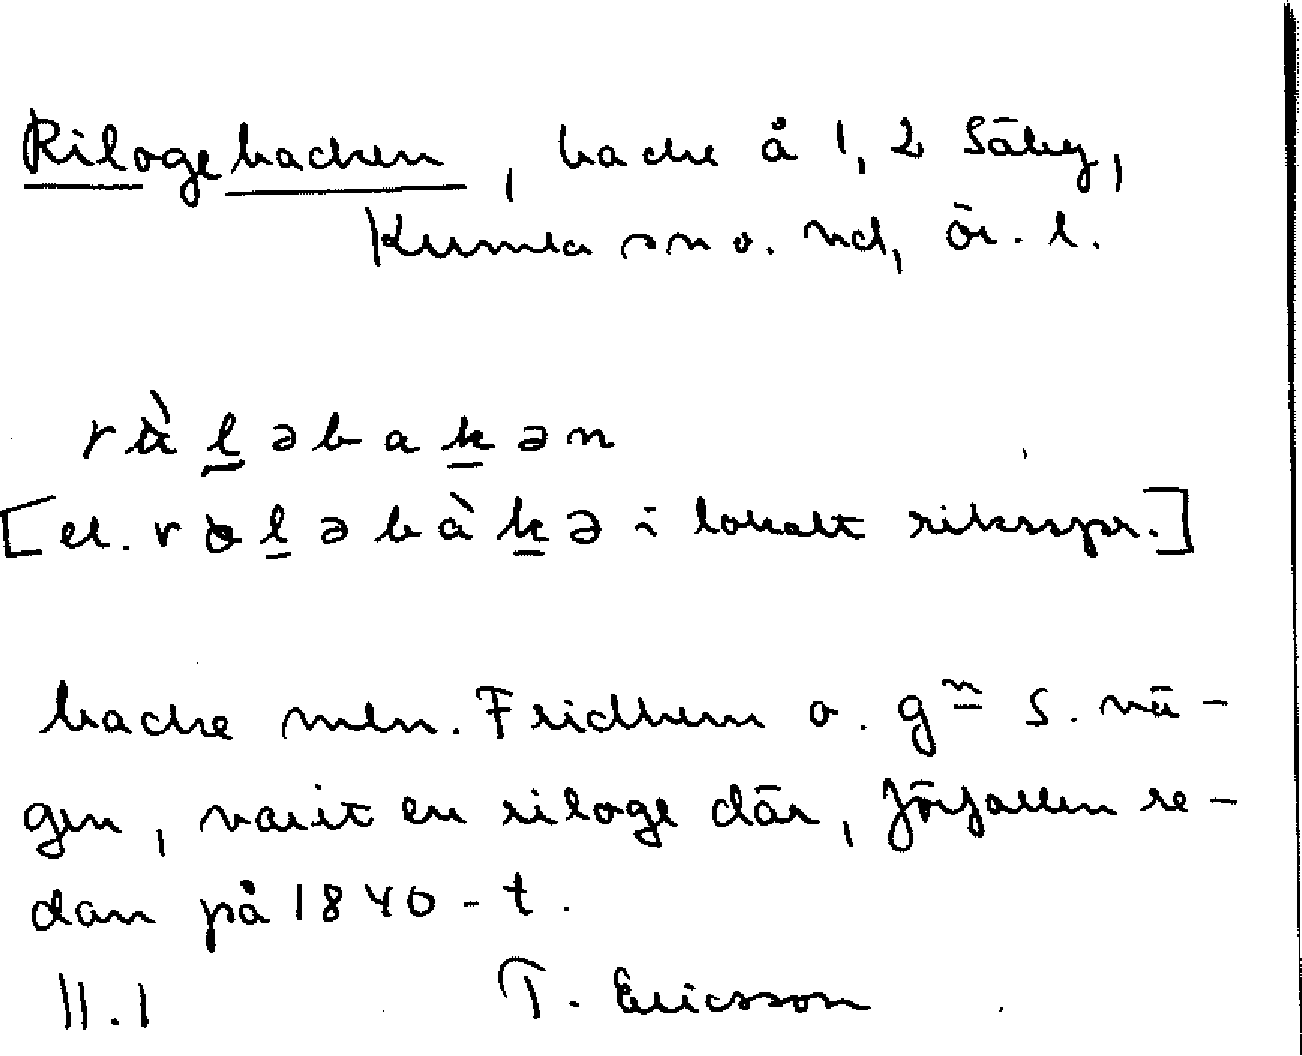 Rilogebacken, backe å 1, 2 Säby,
Kumla sn o. hd, ör. l.
rɑ̀l̠əbak̠ən
[el. rɑl̠əbàk̠ə i lokalt riksspr.]
backe mln. Fridhem o. g~n S. vä-
gen, varit en riloge där, förfallen re-
dan på 1840-t.
11.1 T. Ericsson